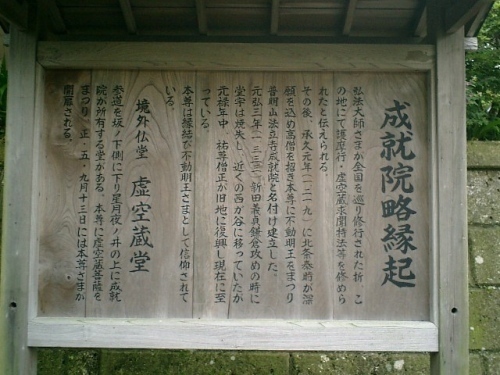 成就院略縁起
弘法大師さまが全国を巡り修行された折 こ
の地にて護摩行・虚空蔵求聞持法等を修めら
れたと伝えられる。
その後、承久元年(一二一九)に北条泰時が深
願を込め高僧を招き本尊に不動明王をまつり
普明山法立寺成就院と名付け建立した。
元弘三年(一三三三)新田義貞鎌倉攻めの時に
堂宇は焼失し、近くの西が谷に移っていたが
元禄年中 祐尊僧正が旧地に復興し現在に至
っている。
本尊は縁結び不動明王さまとして信仰されて
いる。
境外仏堂 虚空蔵堂
参道を坂ノ下側に下り星月夜ノ井の上に成就
院が所有する堂がある。本尊に虚空蔵菩薩を
まつり、正・五・九月十三日には本尊さまが
開扉される。